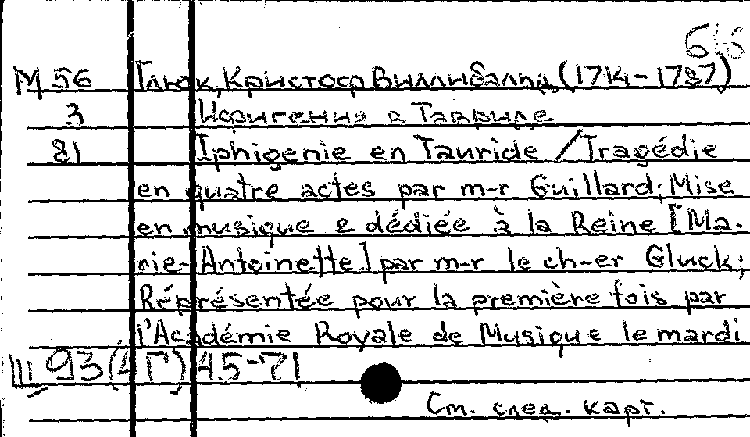 M 56 Глюк, Кристоф Виллибальд (1714-1787)
3 Ифигения в Тавриде
81 Iphigenie en Tauride / Tragédie
en quatre actes par m-r Guillard; Mise
en musique e dédiée à la Reine [Ma-
rie-Antoinette] par m-r le ch-er Gluck;
Réprésentée pour la première fois par
l'Académie Royale de Musique le mardi
Ш 93(4Г) 45-71
См. след. карт.